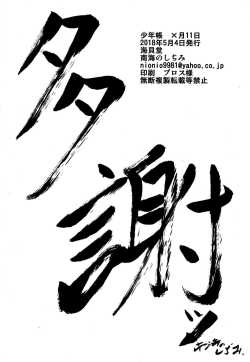 少年帳　×月11日
2018年5月4日発行
海貝堂
南海のしちみ
nionio9981@yahoo.co.jp
印刷　プロス様
無断複製転載等禁止
多謝ッ